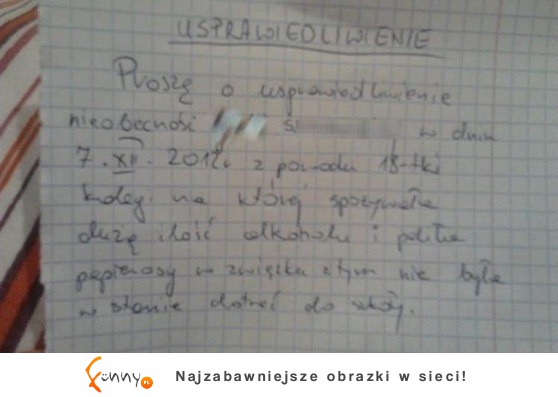 USPRAWIEDLIWIENIE
Proszę o usprawiedliwienie
nieobecność Ś w dniu
7.XII.2012r z powodu 18-tki
kolegi na którą spożywała
dużą ilość alkoholu i paliła
papierosy w związku z tym nie była
w stanie dotrzeć do szkoły.
Funny.PL Najzabawniejsze obrazki w sieci!